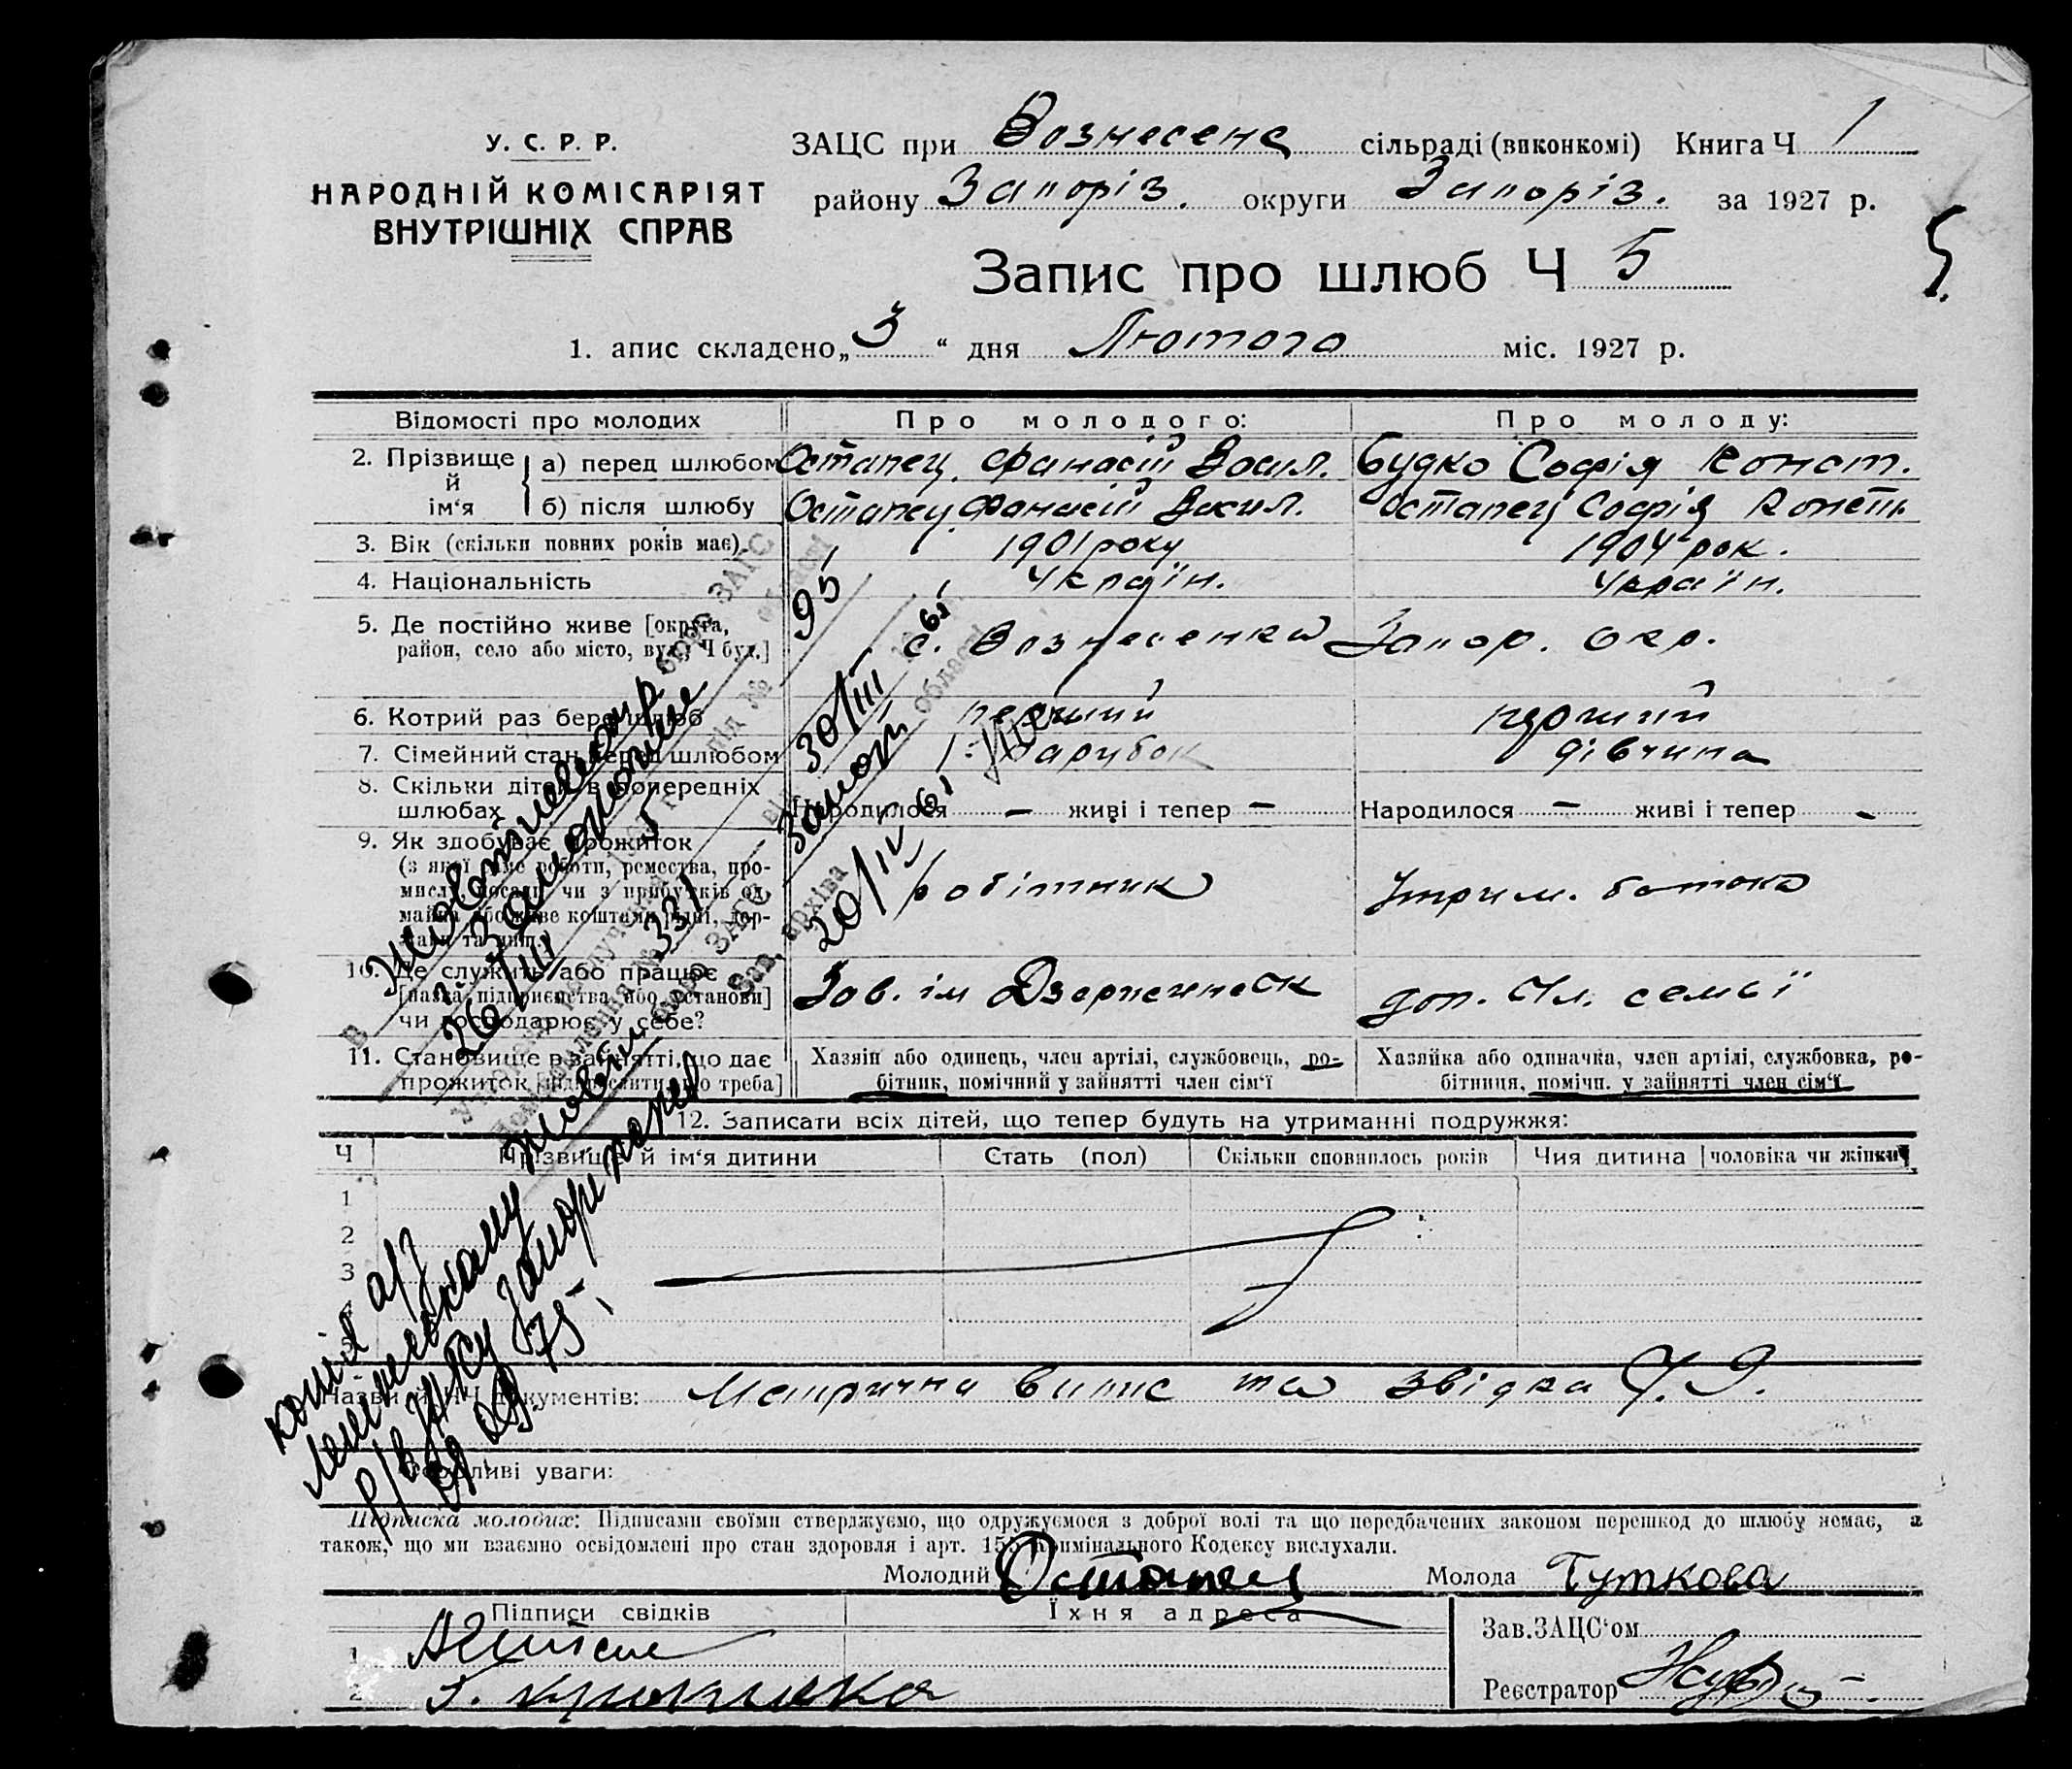 У. С. Р. Р.
НАРОДНІЙ КОМІСАРІЯТ
ВНУТРІШНІХ СПРАВ
ЗАЦС при Вознесенс сільраді (виконкомі) Книга Ч 1
району Запоріз. округи Запоріз. за 1927 р.
Запис про шлюб Ч 5
5
1. апис складено „3“ дня Лютого міс. 1927 р.
Відомості про молодих Про молодого: Про молоду:
2. Прізвище й ім‘я
а) перед шлюбом Остапец Фанасій Васил. Будко Софія Конст.
б) після шлюбу Остапец Фанасій Васил. Остапец Софія Конст.
3. Вік (скільки повних років має) 1901 року 1904 рок.
4. Національність Україн. Україн.
5. Де постійно живе [округа, район, село або місто, вул., Ч буд.] с. Вознесенка Запор. Окр.
6. Котрий раз бере шлюб перший перший
7. Сімейний стан перед шлюбом парубок дівчина
8. Скільки дітей в попередніх шлюбах Народилося — живі і тепер — Народилося — живі і тепер -
9. Як здобуває прожиток
(з якої саме роботи, ремества, про-
мислу, посади чи з прибутків од
майна або живе коштами рідні, дер-
жави та инш.) робітник Утрим. батька
10. Де служить або працює
[назва підприємства або установи]
чи господарює у себе? Зав. ім Дзержинськ доп. Чл. семьї
11. Становище в занятті, що дає
прожиток [підкреслити що треба]
Хазяїн або одинець, член артілі, службовець, ро-
бітник, помічний у зайнятті член сім‘ї
Хазяйка або одиначка, член артілі, службовка, ро-
бітниця, помічн. у зайнятті член сім‘ї
12. Записати всіх дітей, що тепер будуть на утриманні подружжя:
Ч Прізвище й ім‘я дитини Стать (пол) Скільки сповнилось років Чия дитина [чоловіка чи жінки]
1
2
3
4
5
Назви й ЧЧ документів: Метрична випис та звідка Ч. 9.
Особливі уваги:
Підписка молодих: Підписами своїми стверджуємо, що одружуємося з доброї волі та що передбачених законом перешкод до шлюбу немає, а
також, що ми взаємно освідомлені про стан здоров‘я і арт. 155 Кримінального Кодексу вислухали.
Молодий Остапец Молода Гуткова
Підписи свідків Їхня адреса
1
2
Зав.ЗАЦС‘ом
Реєстратор
В бюро ЗАГС
Запорожье області
26/III під № 95
331
30/III 61
Зав. архіва
20/IV 61
75